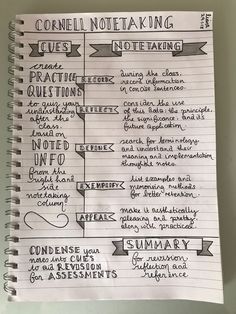 CORNELL NOTETAKING
CUES
create
PRACTICE
QUESTIONS
to quiz your
understanding
after the
class.
based on
NOTED
INFO
from the
right hand
side
notetaking
column.
NOTETAKING
RECORD
during the class,
record information
in concise sentences.
REFLECTS
consider the use
of this data: the principle,
the significance, and it's
future application.
DEFINE
search for terminology
and understand their
meaning and implementation
throughout notes.
EXEMPLIFY
list examples and
memorising methods
for better retention.
APPEAL
make it aesthetically
pleasing and pretty
along with practical.
CONDENSE your
notes into CUES
to aid REVISION
for ASSESSMENTS
SUMMARY
for revision
reflection and
reference